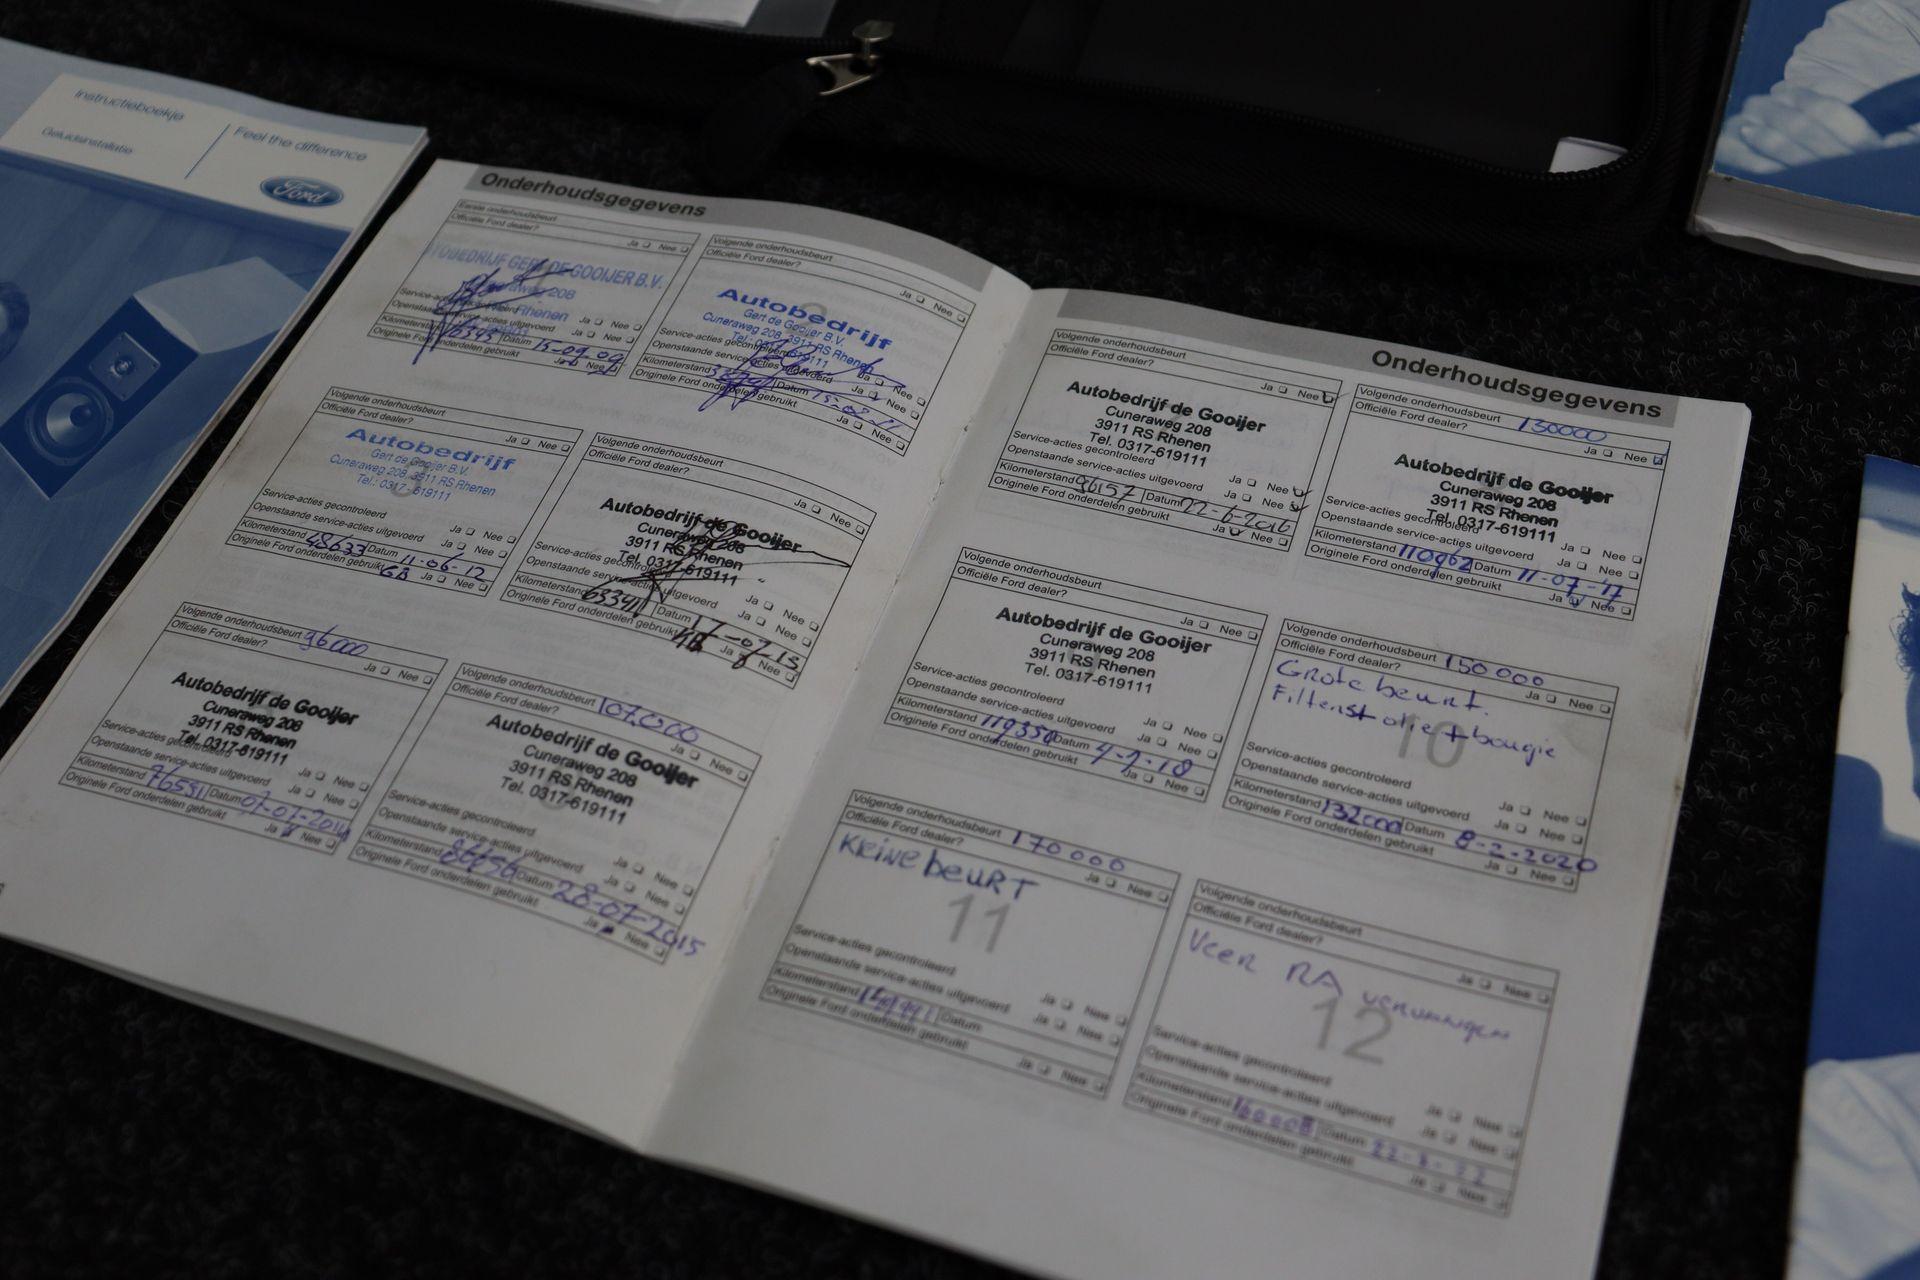 Instructieboekje
Geluidsinstallatie
Feel the difference
Ford
Onderhoudsgegevens
Eerste onderhoudsbeurt
Officiële Ford dealer?
Ja Nee
GERT DE GOOIJER B.V.
208
Rhenen
Ja Nee
Ja Nee
Datum 15-09-09
Originele Ford onderdelen gebruikt
Ja Nee
Volgende onderhoudsbeurt
Officiële Ford dealer?
Ja Nee
Autobedrijf
Gert de Gooijer B.V.
Cuneraweg 208, 3911 RS Rhenen
Service-acties gecontroleerd
Openstaande service-acties uitgevoerd
Ja Nee
Ja Nee
Kilometerstand Datum
Originele Ford onderdelen gebruikt
Ja Nee
Volgende onderhoudsbeurt
Officiële Ford dealer?
Ja Nee
Autobedrijf
Gert de Gooijer B.V.
Cuneraweg 208, 3911 RS Rhenen
Tel.: 0317 - 619111
Service-acties gecontroleerd
Ja Nee
Openstaande service-acties uitgevoerd
Ja Nee
Kilometerstand 48633 Datum 11-06-12
Originele Ford onderdelen gebruikt
Ja Nee
Volgende onderhoudsbeurt
Officiële Ford dealer?
Ja Nee
Autobedrijf de Gooijer
Cuneraweg 208
3911 RS Rhenen
Tel. 0317-619111
Service-acties gecontroleerd
Ja Nee
Openstaande service-acties uitgevoerd
Ja Nee
Kilometerstand 63341 Datum 17-07-13
Originele Ford onderdelen gebruikt
Ja Nee
Volgende onderhoudsbeurt 96000
Officiële Ford dealer?
Ja Nee
Autobedrijf de Gooijer
Cuneraweg 208
3911 RS Rhenen
Tel. 0317-619111
Service-acties gecontroleerd
Ja Nee
Openstaande service-acties uitgevoerd
Ja Nee
Kilometerstand 76591 Datum 07-07-2014
Originele Ford onderdelen gebruikt
Ja Nee
Volgende onderhoudsbeurt 107.000
Officiële Ford dealer?
Ja Nee
Autobedrijf de Gooijer
Cuneraweg 208
3911 RS Rhenen
Tel. 0317-619111
Service-acties gecontroleerd
Ja Nee
Openstaande service-acties uitgevoerd
Ja Nee
Kilometerstand Datum 28-07-2015
Originele Ford onderdelen gebruikt
Ja Nee
Onderhoudsgegevens
Volgende onderhoudsbeurt
Officiële Ford dealer?
Ja Nee
Autobedrijf de Gooijer
Cuneraweg 208
3911 RS Rhenen
Tel. 0317-619111
Service-acties gecontroleerd
Ja Nee
Openstaande service-acties uitgevoerd
Ja Nee
Kilometerstand 96157 Datum 22-6-2016
Originele Ford onderdelen gebruikt
Ja Nee
Volgende onderhoudsbeurt 130000
Officiële Ford dealer?
Ja Nee
Autobedrijf de Gooijer
Cuneraweg 208
3911 RS Rhenen
Tel. 0317-619111
Service-acties gecontroleerd
Ja Nee
Openstaande service-acties uitgevoerd
Ja Nee
Kilometerstand 110962 Datum 11-07-17
Originele Ford onderdelen gebruikt
Ja Nee
Volgende onderhoudsbeurt
Officiële Ford dealer?
Ja Nee
Autobedrijf de Gooijer
Cuneraweg 208
3911 RS Rhenen
Tel. 0317-619111
Service-acties gecontroleerd
Ja Nee
Openstaande service-acties uitgevoerd
Ja Nee
Kilometerstand 119350 Datum
Originele Ford onderdelen gebruikt
Ja Nee
Volgende onderhoudsbeurt 150000
Officiële Ford dealer?
Ja Nee
Grote beurt.
olie + bougie
10
Service-acties gecontroleerd
Ja Nee
Openstaande service-acties uitgevoerd
Ja Nee
Kilometerstand 132000 Datum 8-2-2020
Originele Ford onderdelen gebruikt
Ja Nee
Volgende onderhoudsbeurt 170000
Officiële Ford dealer?
Ja Nee
Kleine beurt
11
Service-acties gecontroleerd
Ja Nee
Openstaande service-acties uitgevoerd
Ja Nee
Kilometerstand Datum
Originele Ford onderdelen gebruikt
Ja Nee
Volgende onderhoudsbeurt
Officiële Ford dealer?
Ja Nee
Veer RA
12
Service-acties gecontroleerd
Ja Nee
Openstaande service-acties uitgevoerd
Ja Nee
Kilometerstand Datum
Originele Ford onderdelen gebruikt
Ja Nee